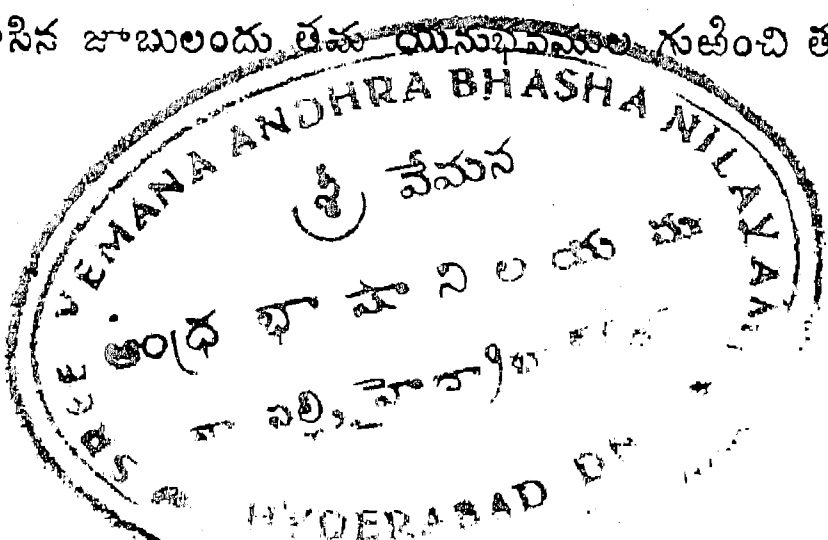 సిన జాబులందు తమ యనుభవముల గుఱించి త
SREE VEMANA ANDHRA BHASHA NILAYAM
శ్రీ వేమన
ఆంధ్ర భాషా నిలయము
HYDERABAD